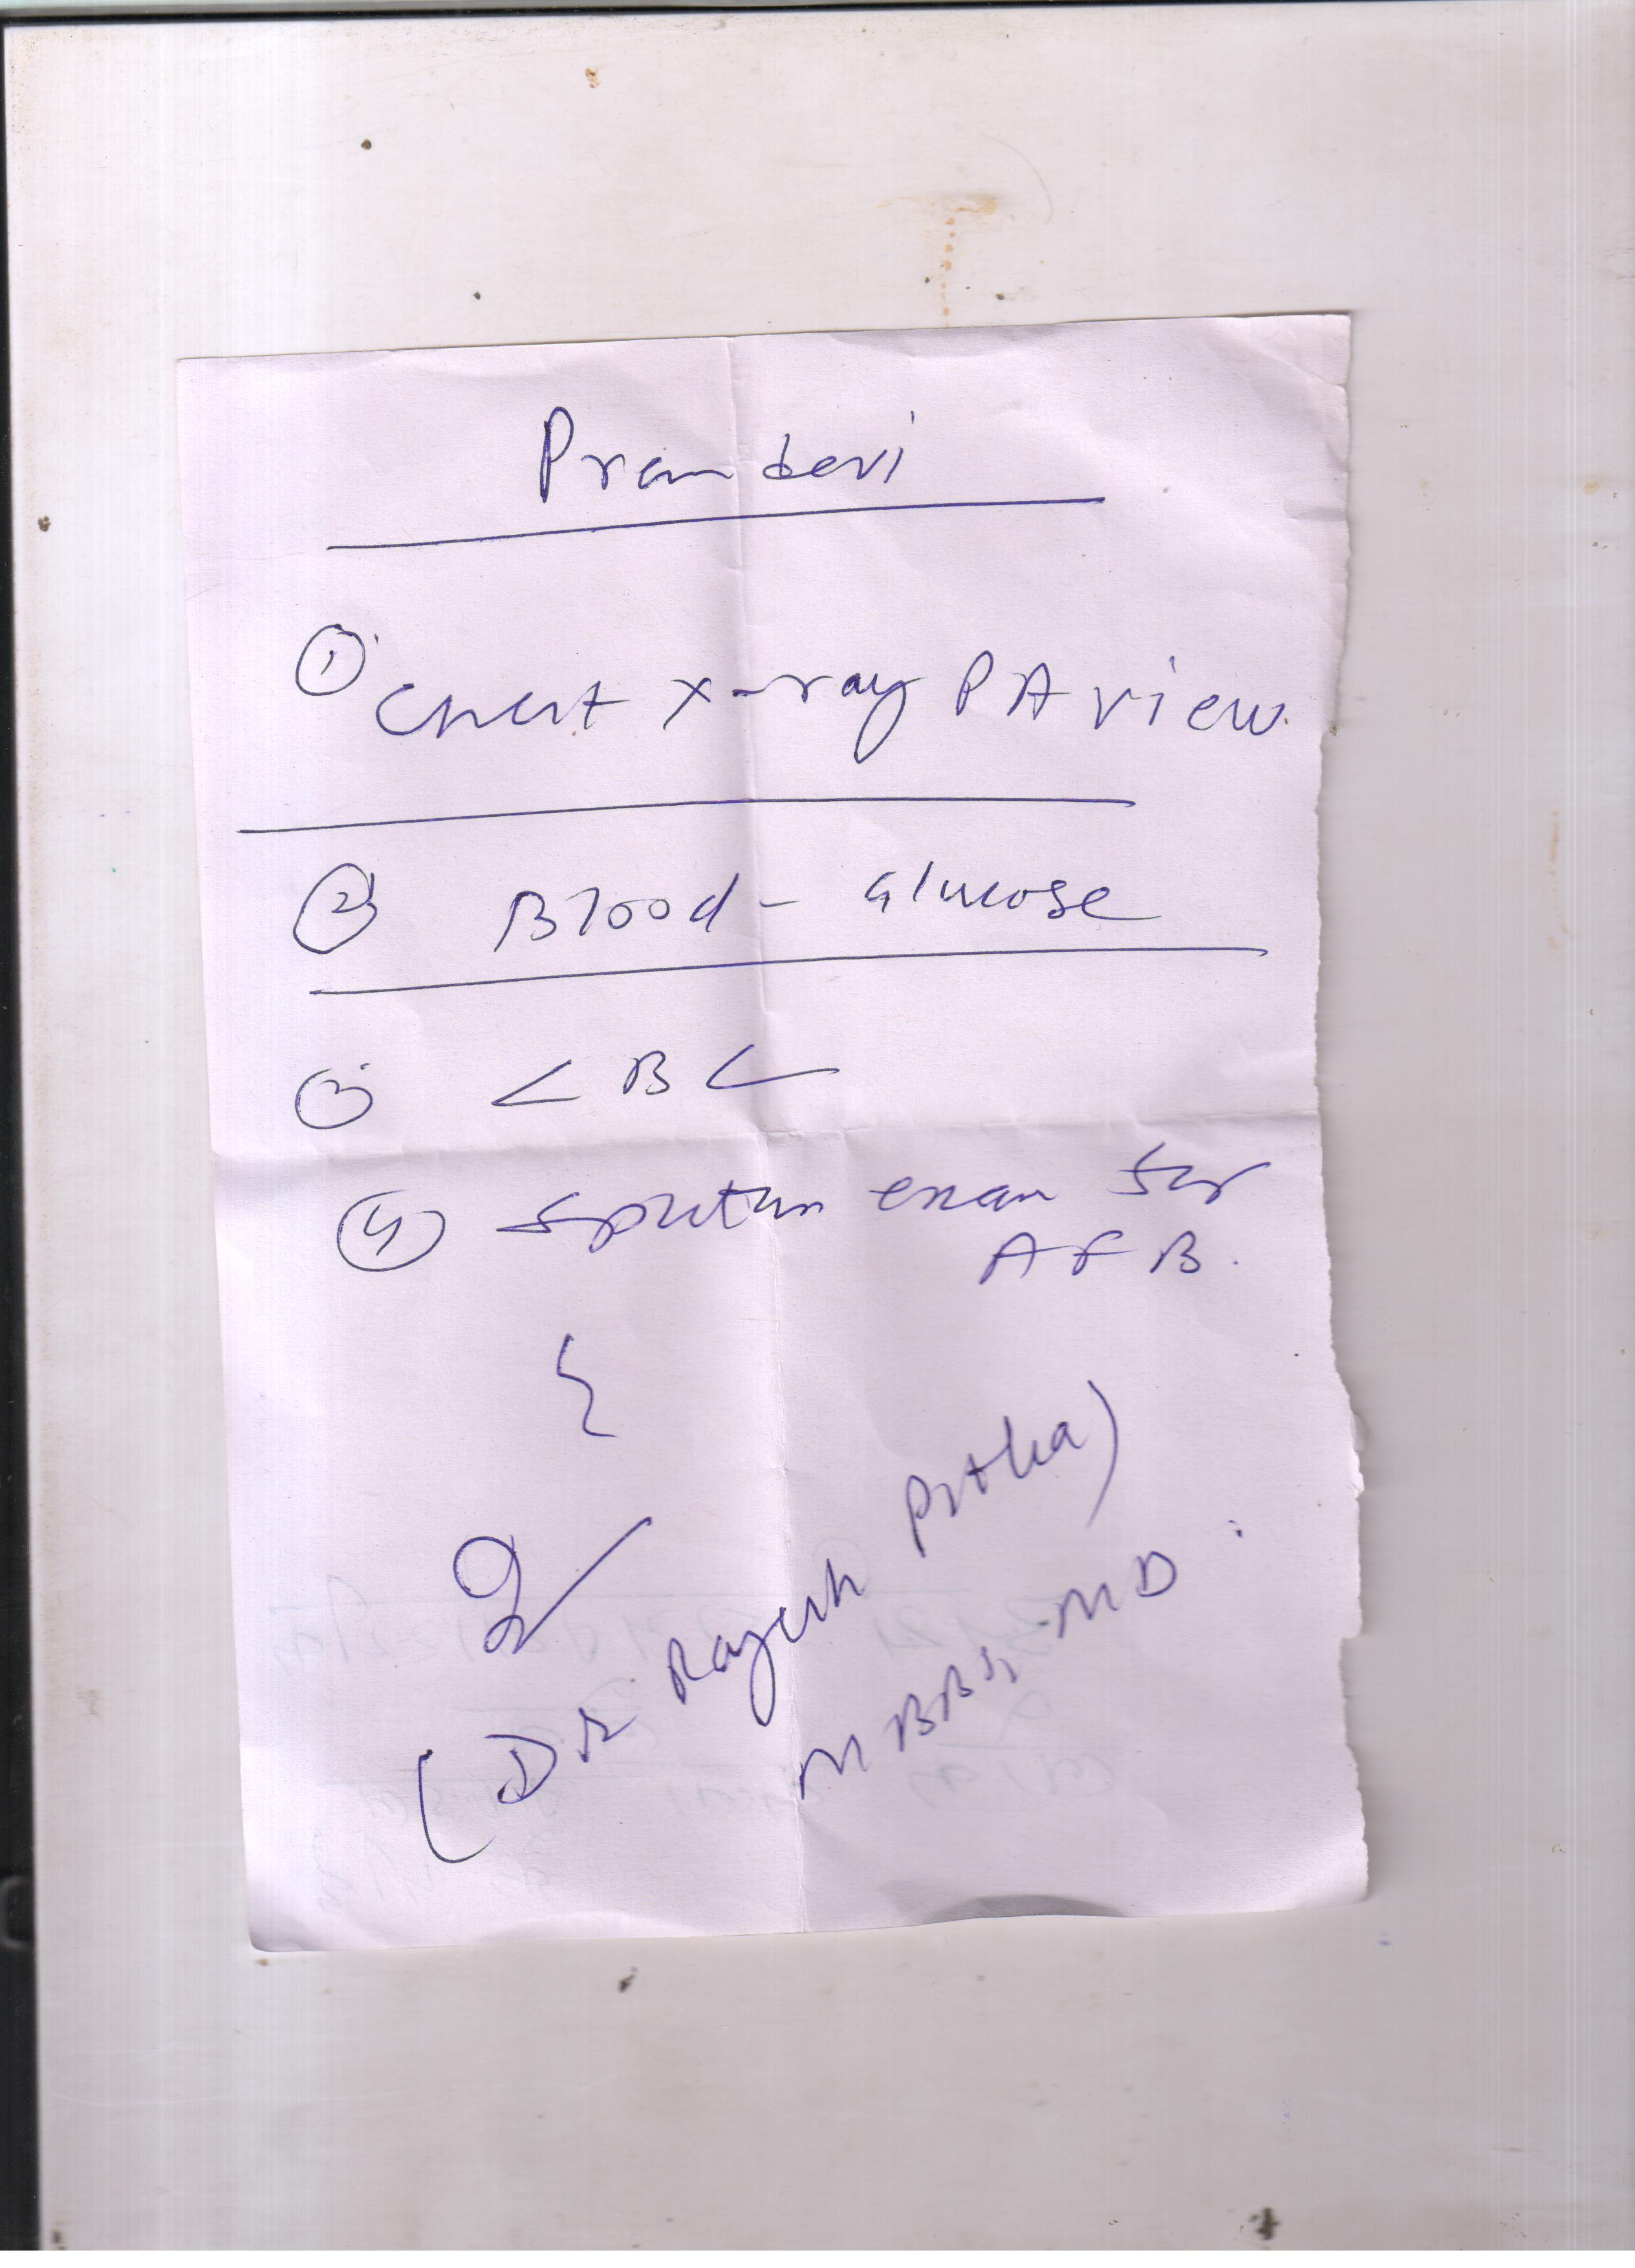 Prem devi
① Chest X-ray PA view.
② Blood - Glucose
③ CBC
④ Sputum exam for
AFB.
(Dr. Rajesh
MBBS, MD